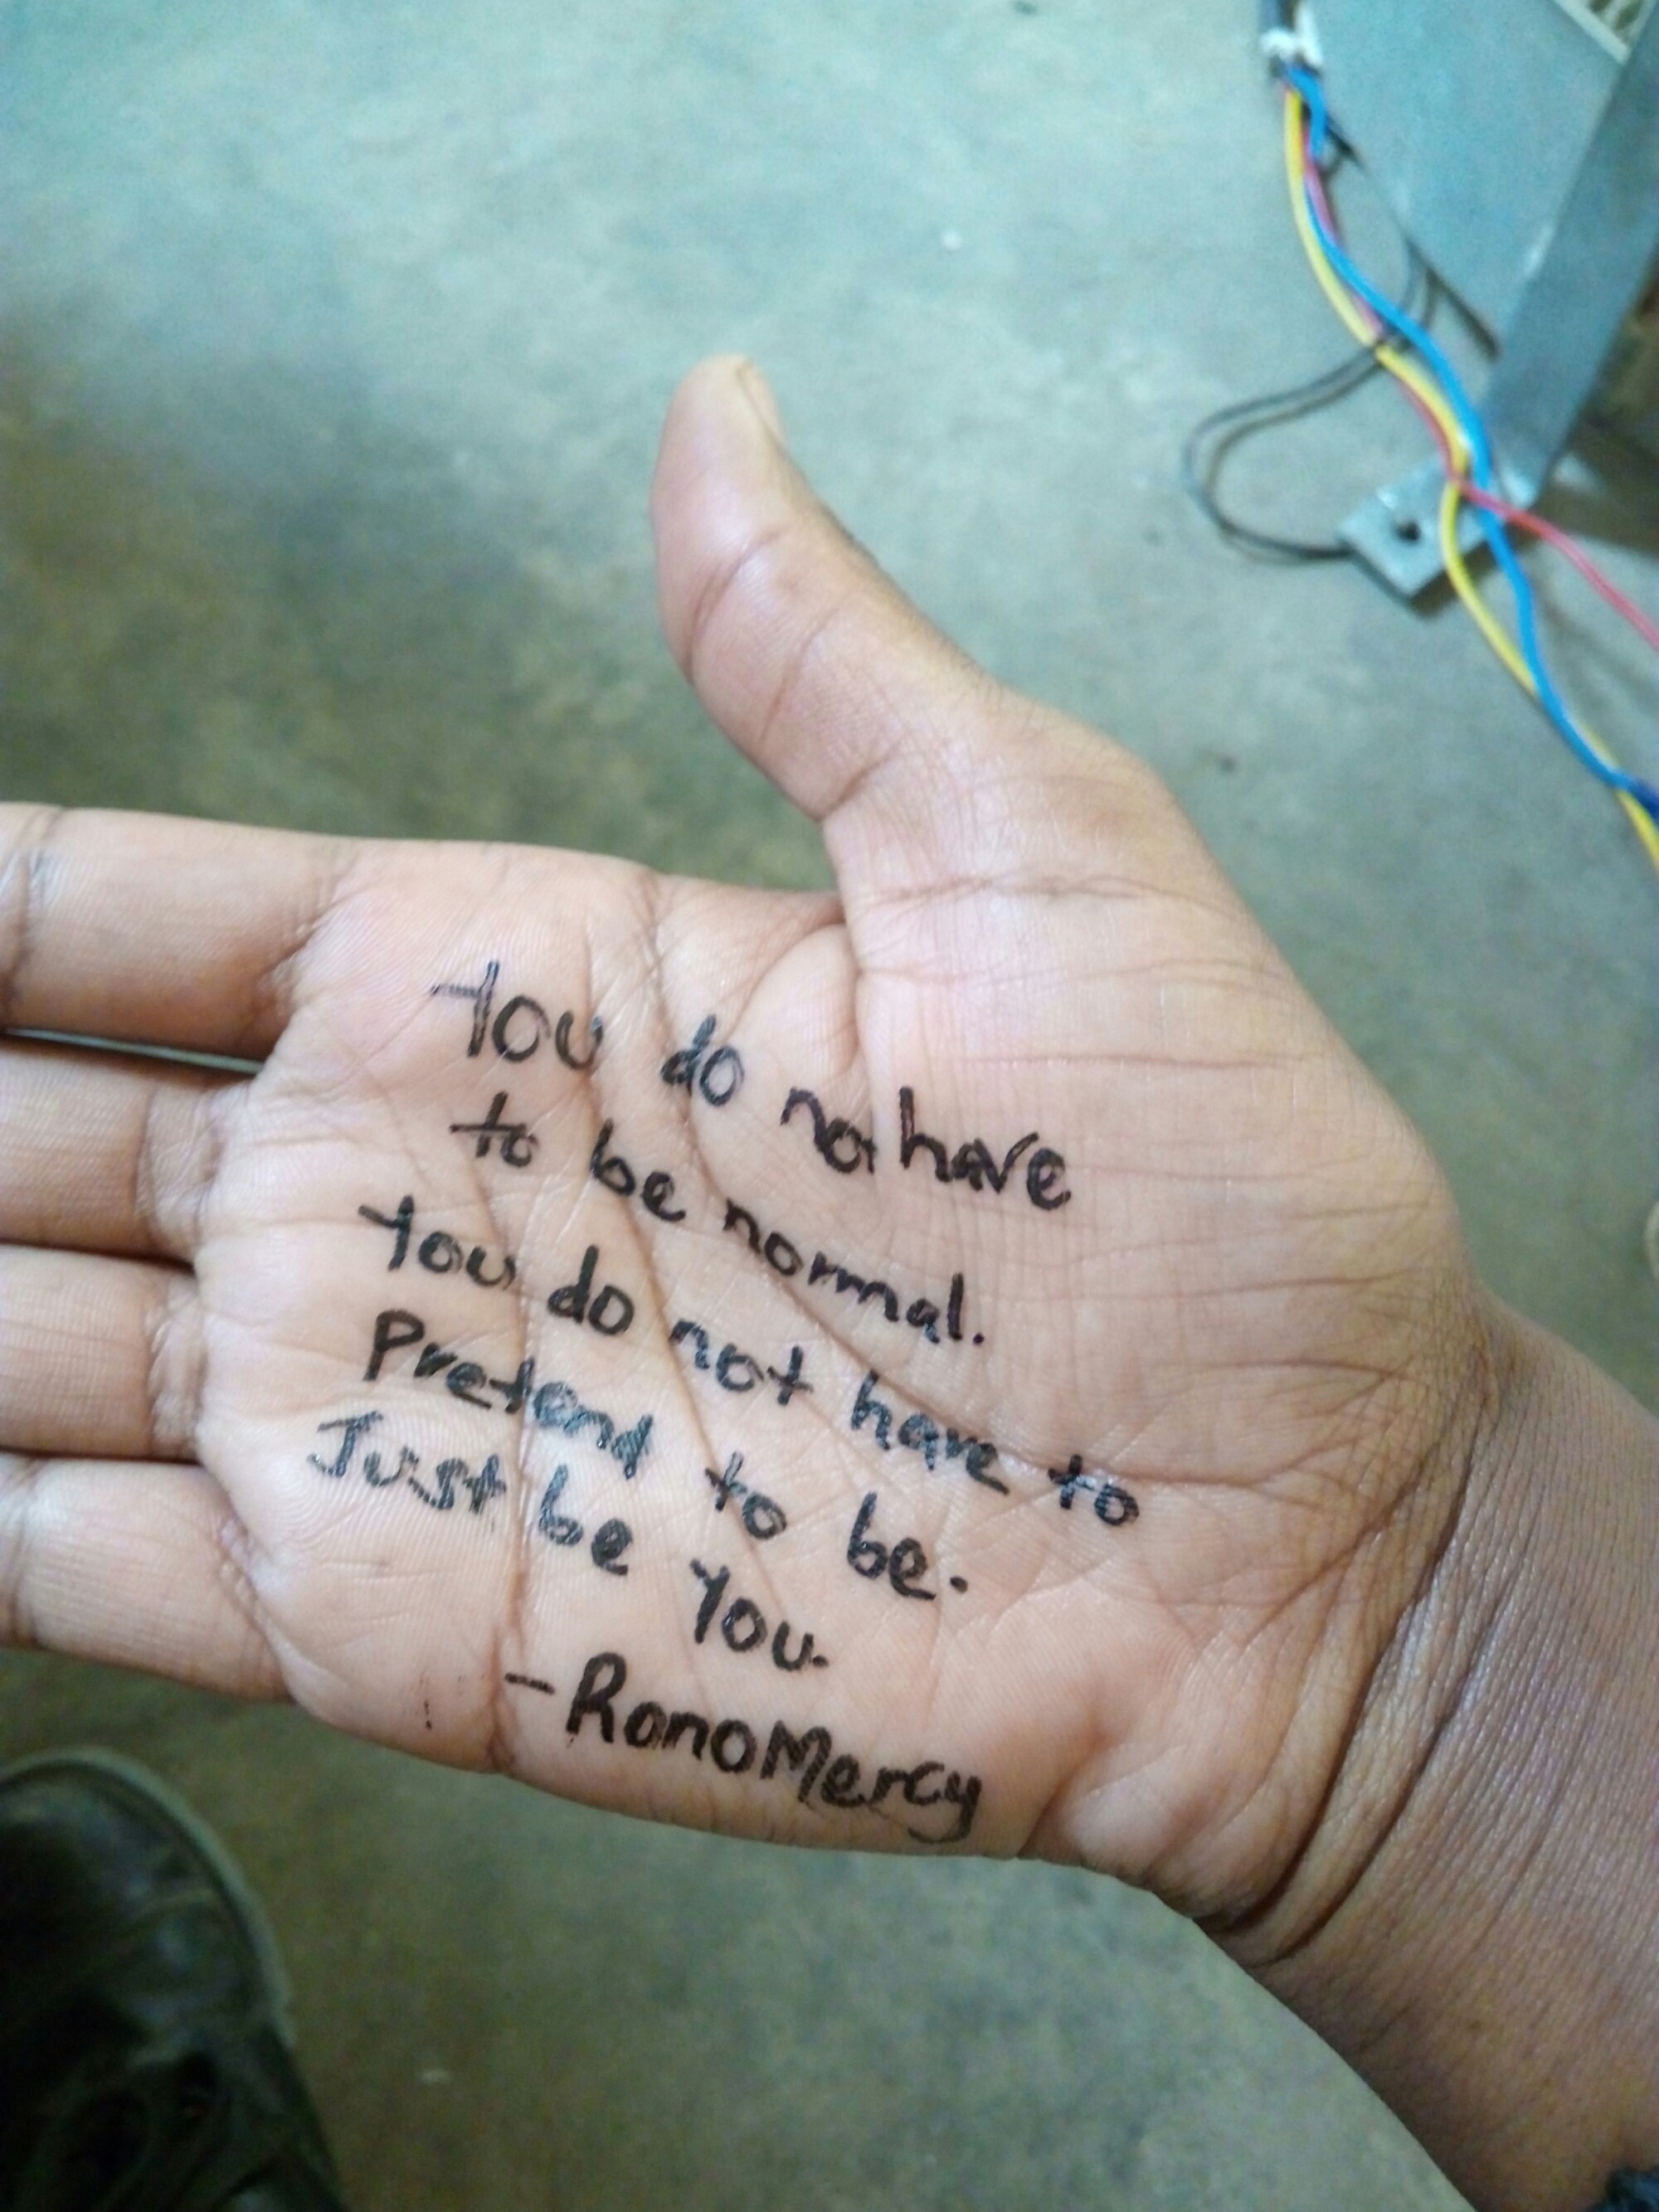 You do not have
to be normal.
You do not have to
Pretend to be.
Just be You.
-RonoMercy